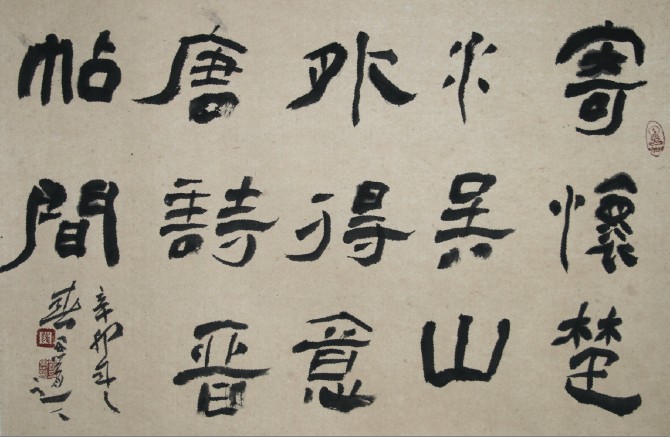 寄懷楚
水吳山
外得意
唐詩晉
帖間
辛卯年